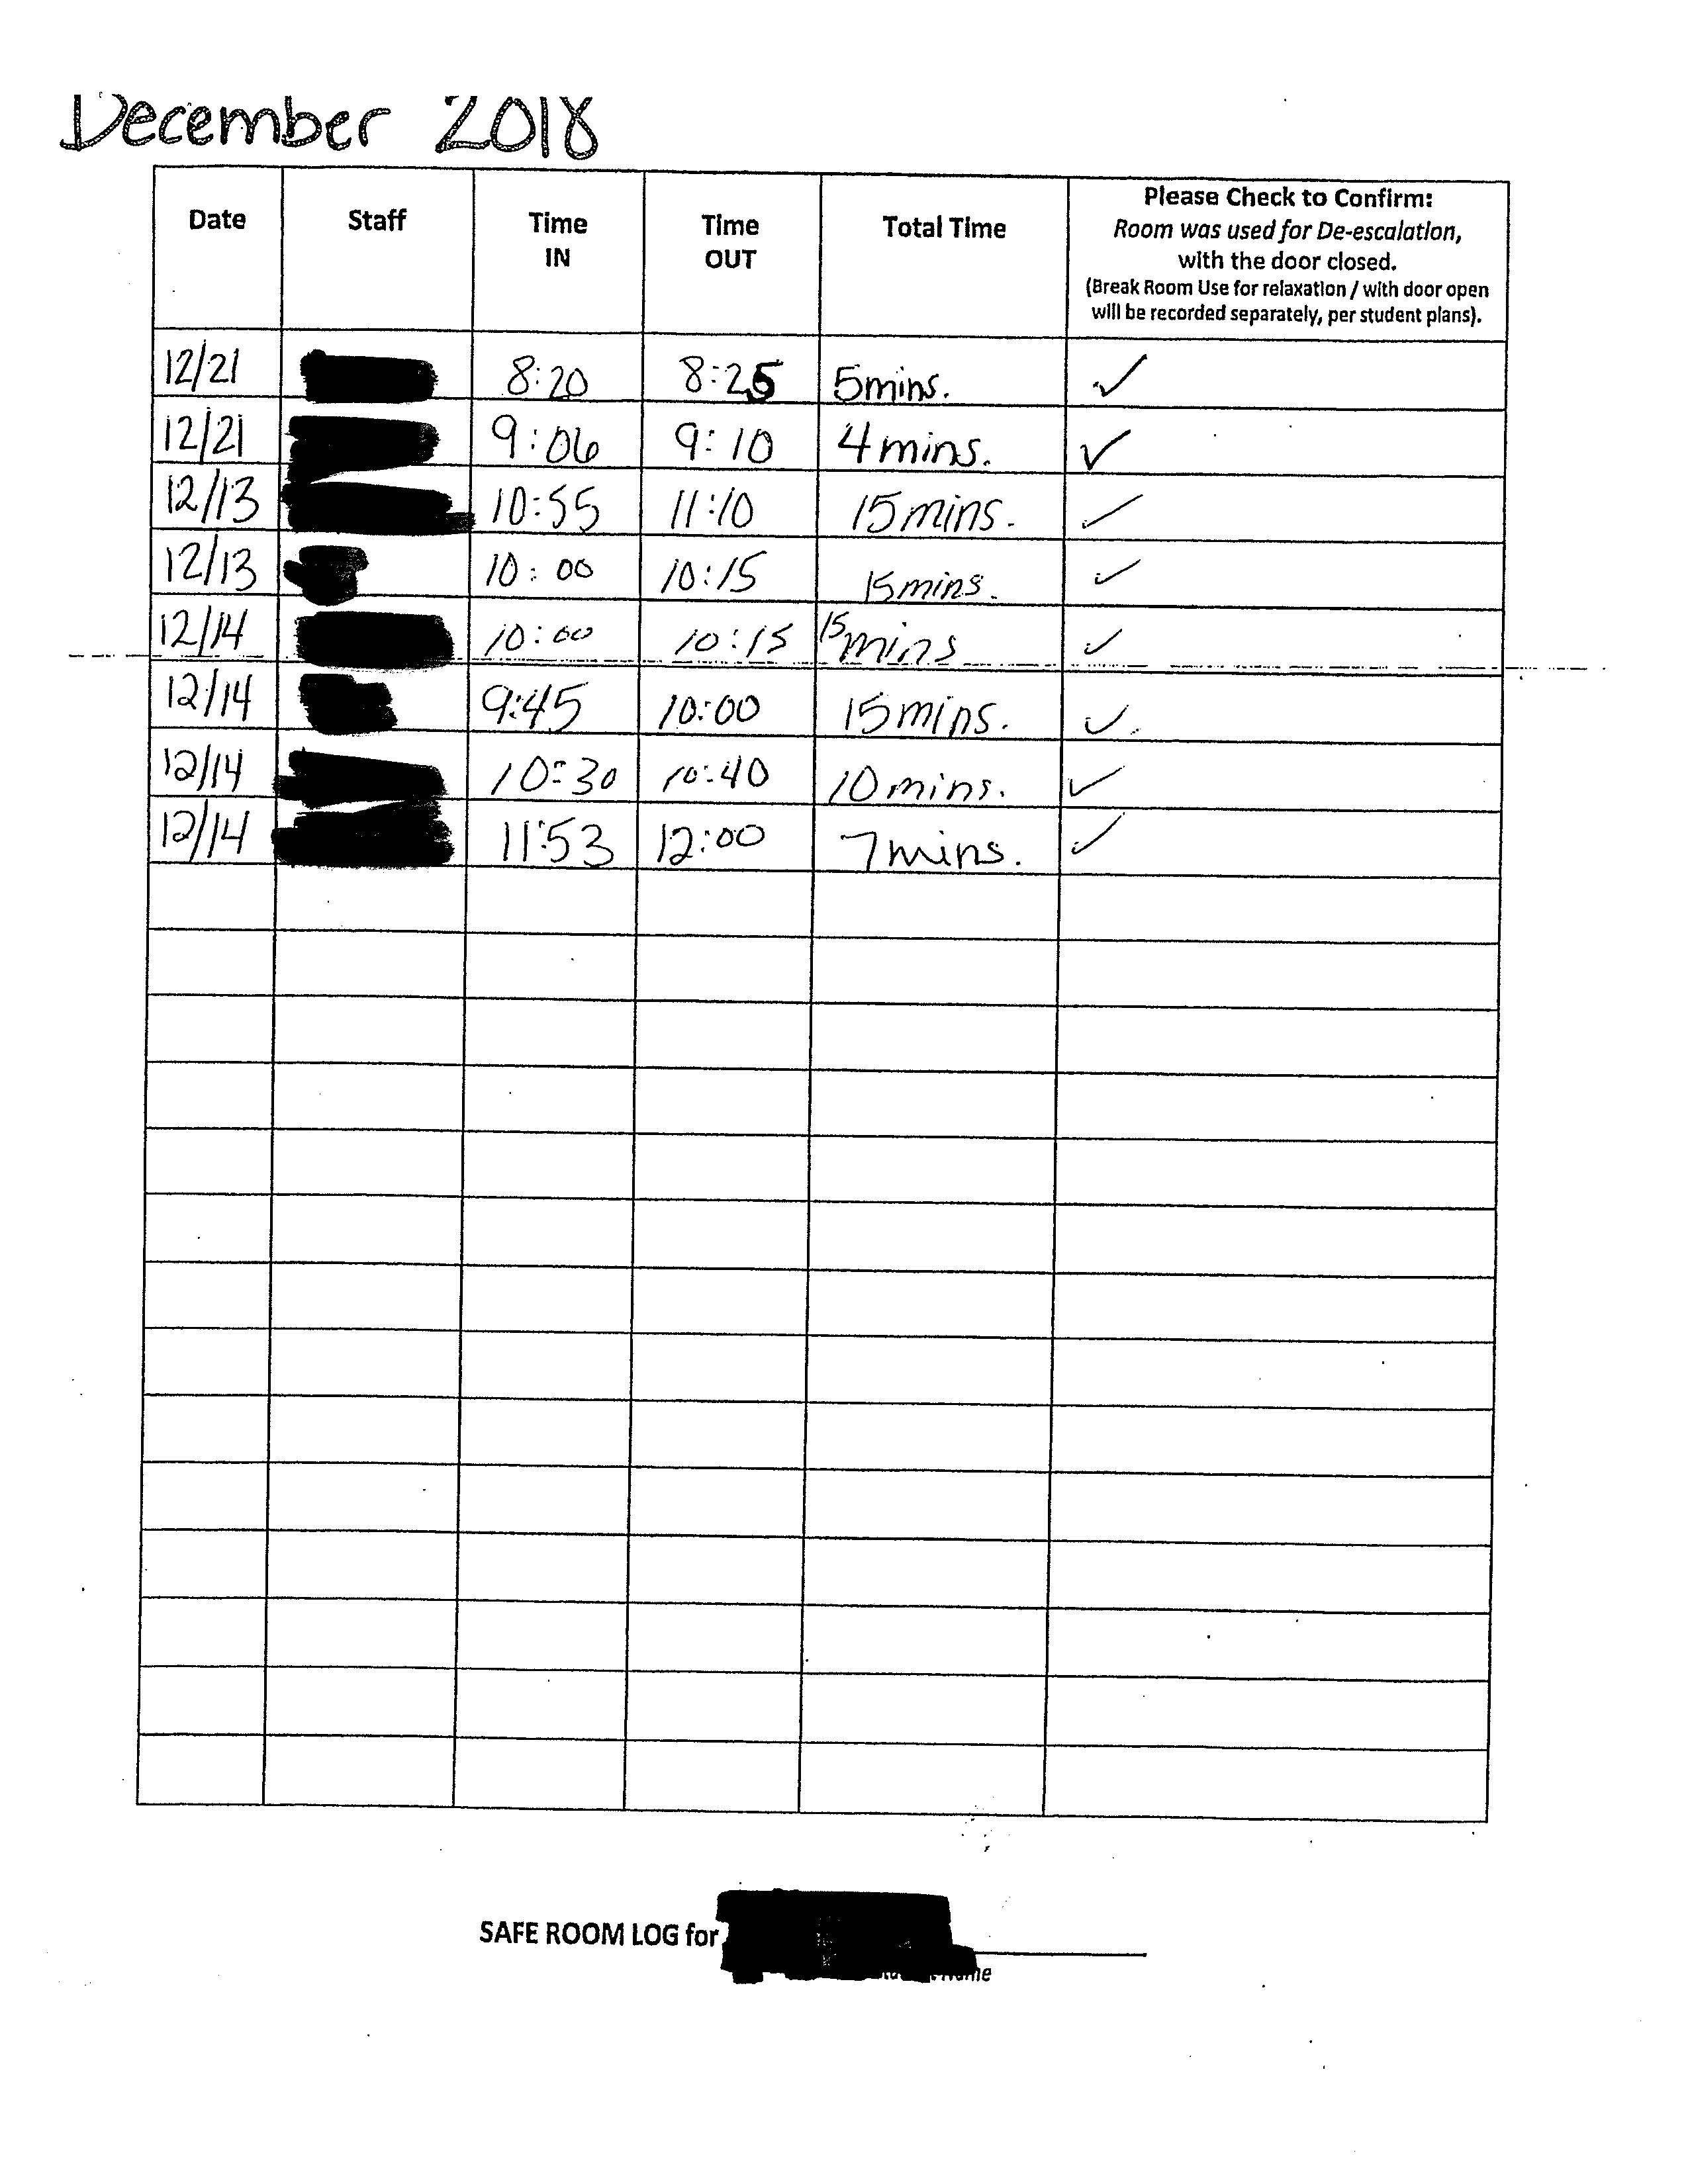 December 2018
Date Staff Time IN Time OUT Total Time Please Check to Confirm:
Room was used for De-escalation,
with the door closed.
(Break Room Use for relaxation / with door open
will be recorded separately, per student plans).
12/21 8:20 8:25 5mins. ✓
12/21 9:06 9:10 4 mins. ✓
12/13 10:55 11:10 15 mins. ✓
12/13 10:00 10:15 15 mins. ✓
12/14 10:00 10:15 15 mins ✓
12/14 9:45 10:00 15 mins. ✓
12/14 10:30 10:40 10 mins. ✓
12/14 11:53 12:00 7 mins. ✓
SAFE ROOM LOG for
Name